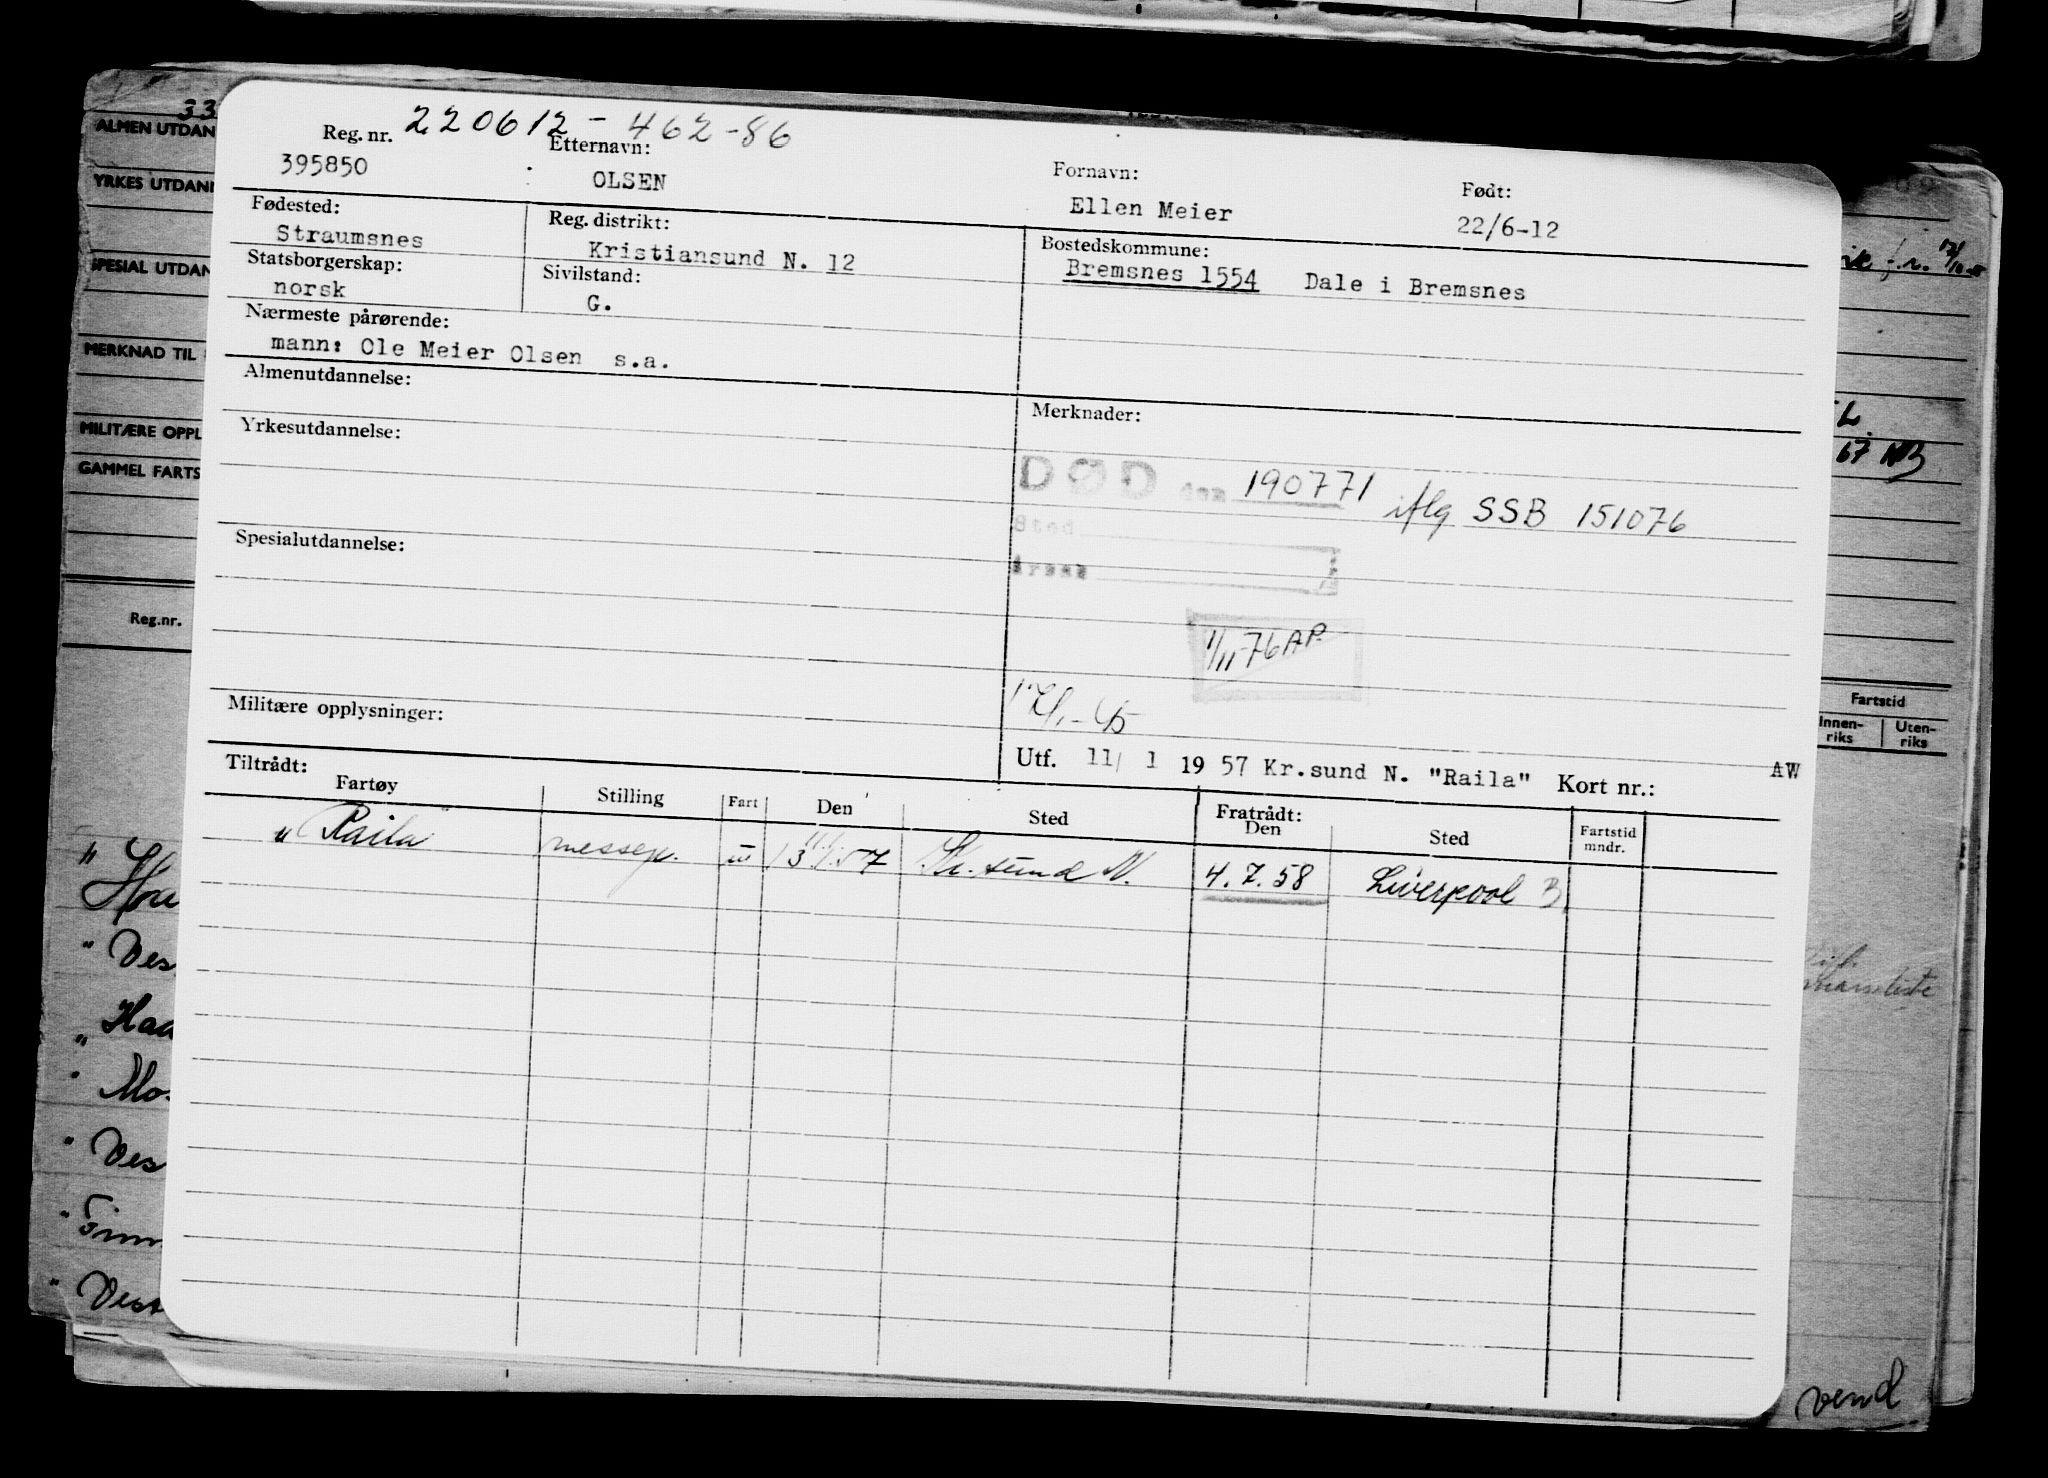 220612-462-86
Reg. nr. Etternavn: Fornavn: Født:
395850 OLSEN Ellen Meier 22/6-12
Fødested: Reg. distrikt: Bostedskommune:
Straumsnes Kristiansund N. 12 Bremsnes 1554 Dale i Bremsnes
Statsborgerskap: Sivilstand:
norsk G.
Nærmeste pårørende:
mann: Ole Meier Olsen s.a.
Almenutdannelse: Merknader:
Yrkesutdannelse:
DØD den 190771 iflg SSB 151076
Sted
Årsak
Spesialutdannelse:
1/11-76 AP.
Militære opplysninger:
Utf. 11/ 1 19 57 Kr.sund N. "Raila" Kort nr.: AW
Tiltrådt: Fratrådt:
Fartøy Stilling Fart Den Sted Den Sted Fartstid mndr.
" Raila" messep. Kr. sund N. 4.7.58 Liverpool B
33
ALMEN UTDAN
YRKES UTDANN
SPESIAL UTDAN
MERKNAD TIL
MILITÆRE OPPL
GAMMEL FARTS
Reg.nr.
" Ves
" Mo
" Ves
" Vest
67 NB
Fartstid
Innen-riks Uten-riks
vend